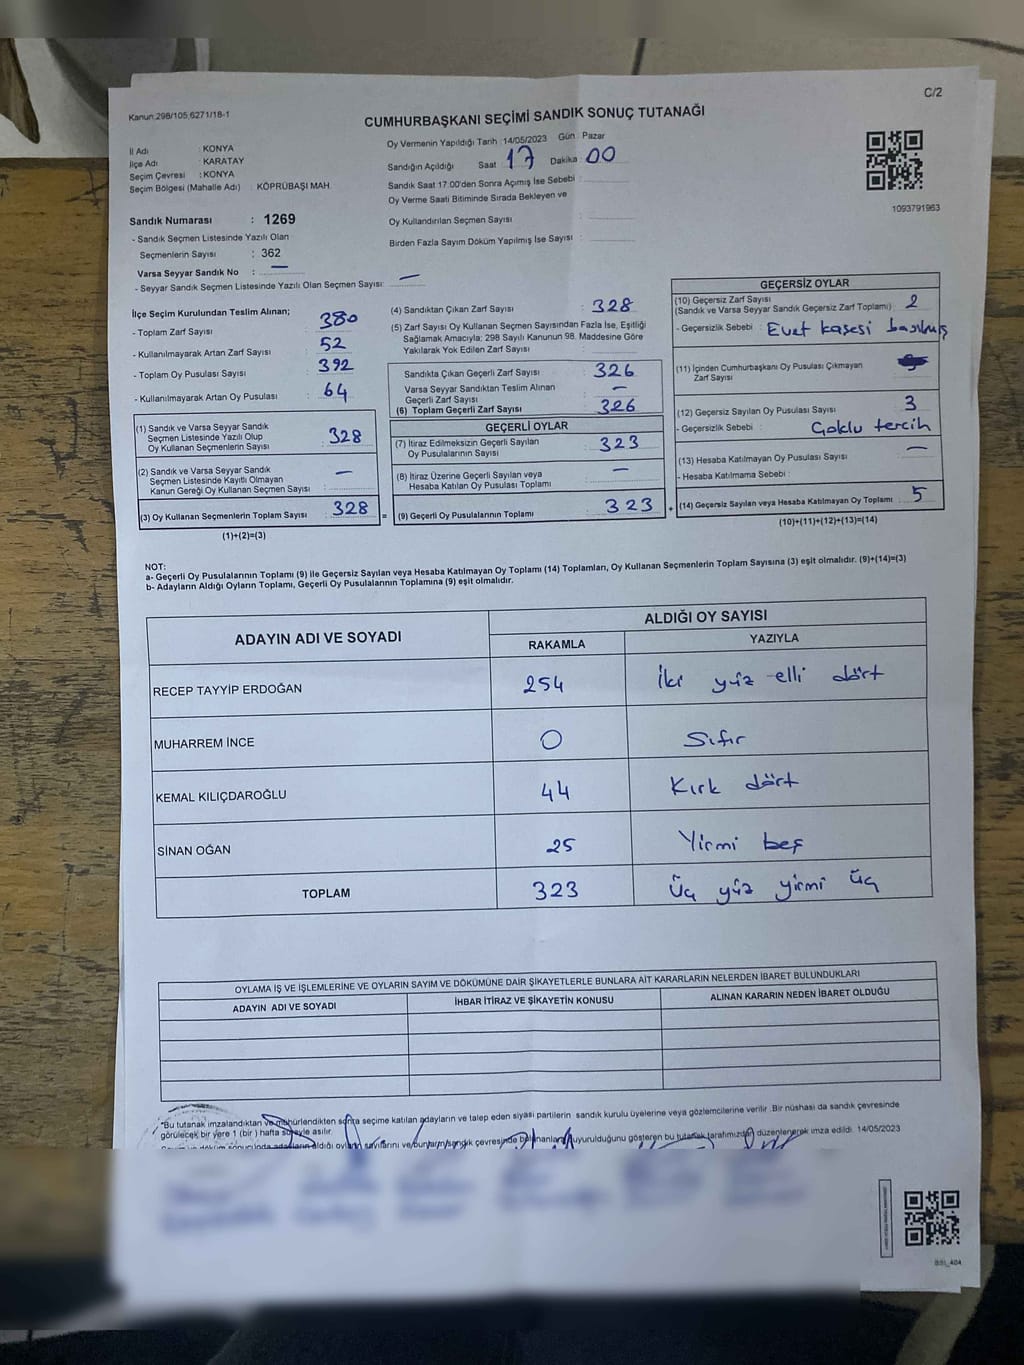 C/2
Kanun:298/105,6271/18-1
CUMHURBAŞKANI SEÇİMİ SANDIK SONUÇ TUTANAĞI
İl Adı : KONYA
İlçe Adı : KARATAY
Seçim Çevresi : KONYA
Seçim Bölgesi (Mahalle Adı) : KÖPRÜBAŞI MAH.
Oy Vermenin Yapıldığı Tarih :14/05/2023 Gün : Pazar
Sandığın Açıldığı Saat 17 Dakika 00
Sandık Saat 17:00'den Sonra Açımış İse Sebebi :
Oy Verme Saati Bitiminde Sırada Bekleyen ve
Oy Kullandırılan Seçmen Sayısı :
Birden Fazla Sayım Döküm Yapılmış İse Sayısı :
1093791963
Sandık Numarası : 1269
- Sandık Seçmen Listesinde Yazılı Olan
Seçmenlerin Sayısı : 362
Varsa Seyyar Sandık No : —
- Seyyar Sandık Seçmen Listesinde Yazılı Olan Seçmen Sayısı: —
İlçe Seçim Kurulundan Teslim Alınan;
- Toplam Zarf Sayısı : 380
- Kullanılmayarak Artan Zarf Sayısı : 52
- Toplam Oy Pusulası Sayısı : 392
- Kullanılmayarak Artan Oy Pusulası : 64
(1) Sandık ve Varsa Seyyar Sandık
Seçmen Listesinde Yazılı Olup
Oy Kullanan Seçmenlerin Sayısı : 328
(2) Sandık ve Varsa Seyyar Sandık
Seçmen Listesinde Kayıtlı Olmayan
Kanun Gereği Oy Kullanan Seçmen Sayısı : —
(3) Oy Kullanan Seçmenlerin Toplam Sayısı : 328 =
(1)+(2)=(3)
(4) Sandıktan Çıkan Zarf Sayısı : 328
(5) Zarf Sayısı Oy Kullanan Seçmen Sayısından Fazla İse, Eşitliği
Sağlamak Amacıyla; 298 Sayılı Kanunun 98. Maddesine Göre
Yakılarak Yok Edilen Zarf Sayısı :
Sandıkta Çıkan Geçerli Zarf Sayısı : 326
Varsa Seyyar Sandıktan Teslim Alınan
Geçerli Zarf Sayısı : —
(6) Toplam Geçerli Zarf Sayısı : 326
GEÇERLİ OYLAR
(7) İtiraz Edilmeksizin Geçerli Sayılan
Oy Pusulalarının Sayısı : 323
(8) İtiraz Üzerine Geçerli Sayılan veya
Hesaba Katılan Oy Pusulası Toplamı : —
(9) Geçerli Oy Pusulalarının Toplamı : 323 +
GEÇERSİZ OYLAR
(10) Geçersiz Zarf Sayısı
(Sandık ve Varsa Seyyar Sandık Geçersiz Zarf Toplamı) : 2
- Geçersizlik Sebebi : Evet kaşesi basılmış
(11) İçinden Cumhurbaşkanı Oy Pusulası Çıkmayan
Zarf Sayısı :
(12) Geçersiz Sayılan Oy Pusulası Sayısı : 3
- Geçersizlik Sebebi : Çoklu tercih
(13) Hesaba Katılmayan Oy Pusulası Sayısı : —
- Hesaba Katılmama Sebebi :
(14) Geçersiz Sayılan veya Hesaba Katılmayan Oy Toplamı : 5
(10)+(11)+(12)+(13)=(14)
NOT:
a- Geçerli Oy Pusulalarının Toplamı (9) ile Geçersiz Sayılan veya Hesaba Katılmayan Oy Toplamı (14) Toplamları, Oy Kullanan Seçmenlerin Toplam Sayısına (3) eşit olmalıdır. (9)+(14)=(3)
b- Adayların Aldığı Oyların Toplamı, Geçerli Oy Pusulalarının Toplamına (9) eşit olmalıdır.
ADAYIN ADI VE SOYADI ALDIĞI OY SAYISI
RAKAMLA YAZIYLA
RECEP TAYYİP ERDOĞAN 254 İki yüz elli dört
MUHARREM İNCE 0 Sıfır
KEMAL KILIÇDAROĞLU 44 Kırk dört
SİNAN OĞAN 25 Yirmi beş
TOPLAM 323 Üç yüz yirmi üç
OYLAMA İŞ VE İŞLEMLERİNE VE OYLARIN SAYIM VE DÖKÜMÜNE DAİR ŞİKAYETLERLE BUNLARA AİT KARARLARIN NELERDEN İBARET BULUNDUKLARI
ADAYIN ADI VE SOYADI İHBAR İTİRAZ VE ŞİKAYETİN KONUSU ALINAN KARARIN NEDEN İBARET OLDUĞU
*Bu tutanak imzalandıktan ve mühürlendikten sonra seçime katılan adayların ve talep eden siyasi partilerin sandık kurulu üyelerine veya gözlemcilerine verilir .Bir nüshası da sandık çevresinde
görülecek bir yere 1 (bir ) hafta süreyle asılır.
adayların aldığı oyların sayılarını ve bunların sandık çevresinde duyurulduğunu gösteren bu tutanak tarafımızdan düzenlenerek imza edildi. 14/05/2023